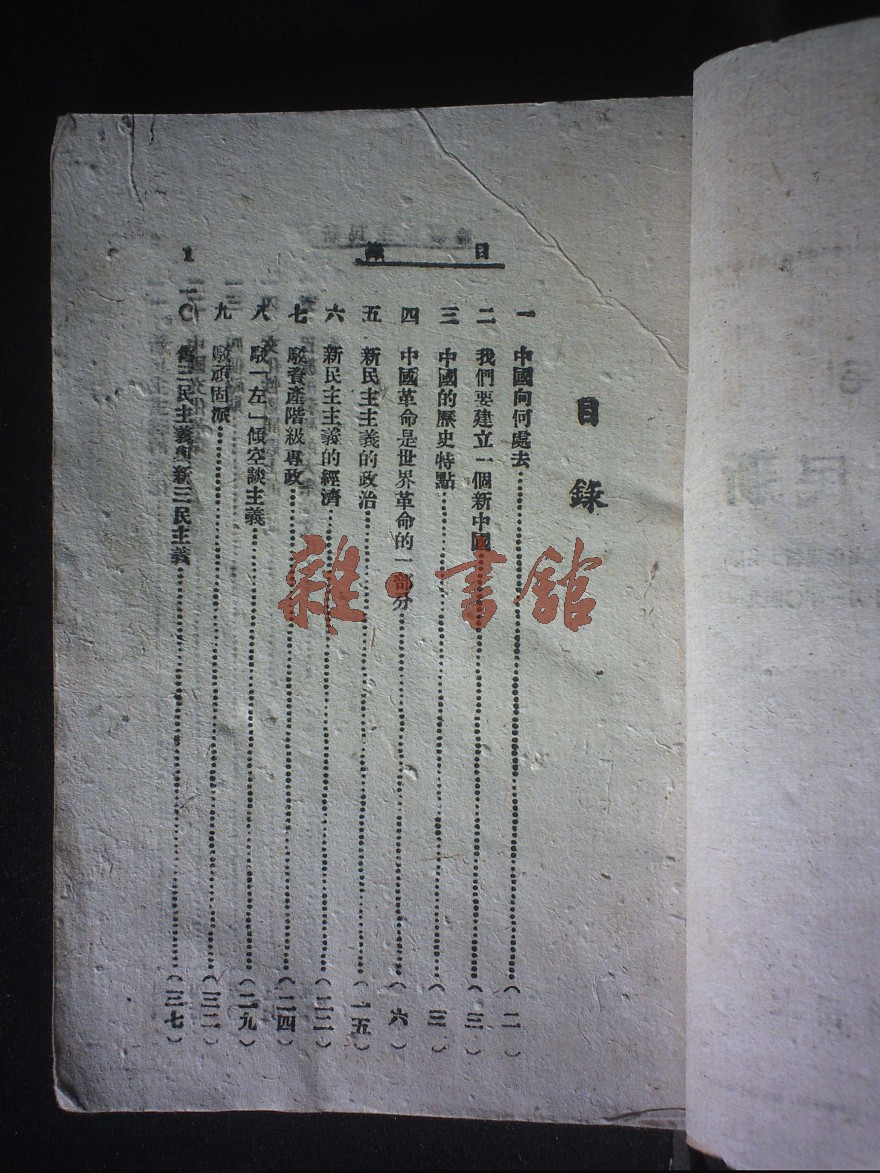 目錄
1
目錄
一 中國向何處去(二)
二 我們要建立一個新中國(三)
三 中國的歷史特點(三)
四 中國革命是世界革命的一部分(六)
五 新民主主義的政治(一五)
六 新民主主義的經濟(二二)
七 駁資產階級專政(二四)
八 駁「左」傾空談主義(二九)
九 駁頑固派(三二)
一〇 舊三民主義與新三民主義(三七)
雜·書館
民新